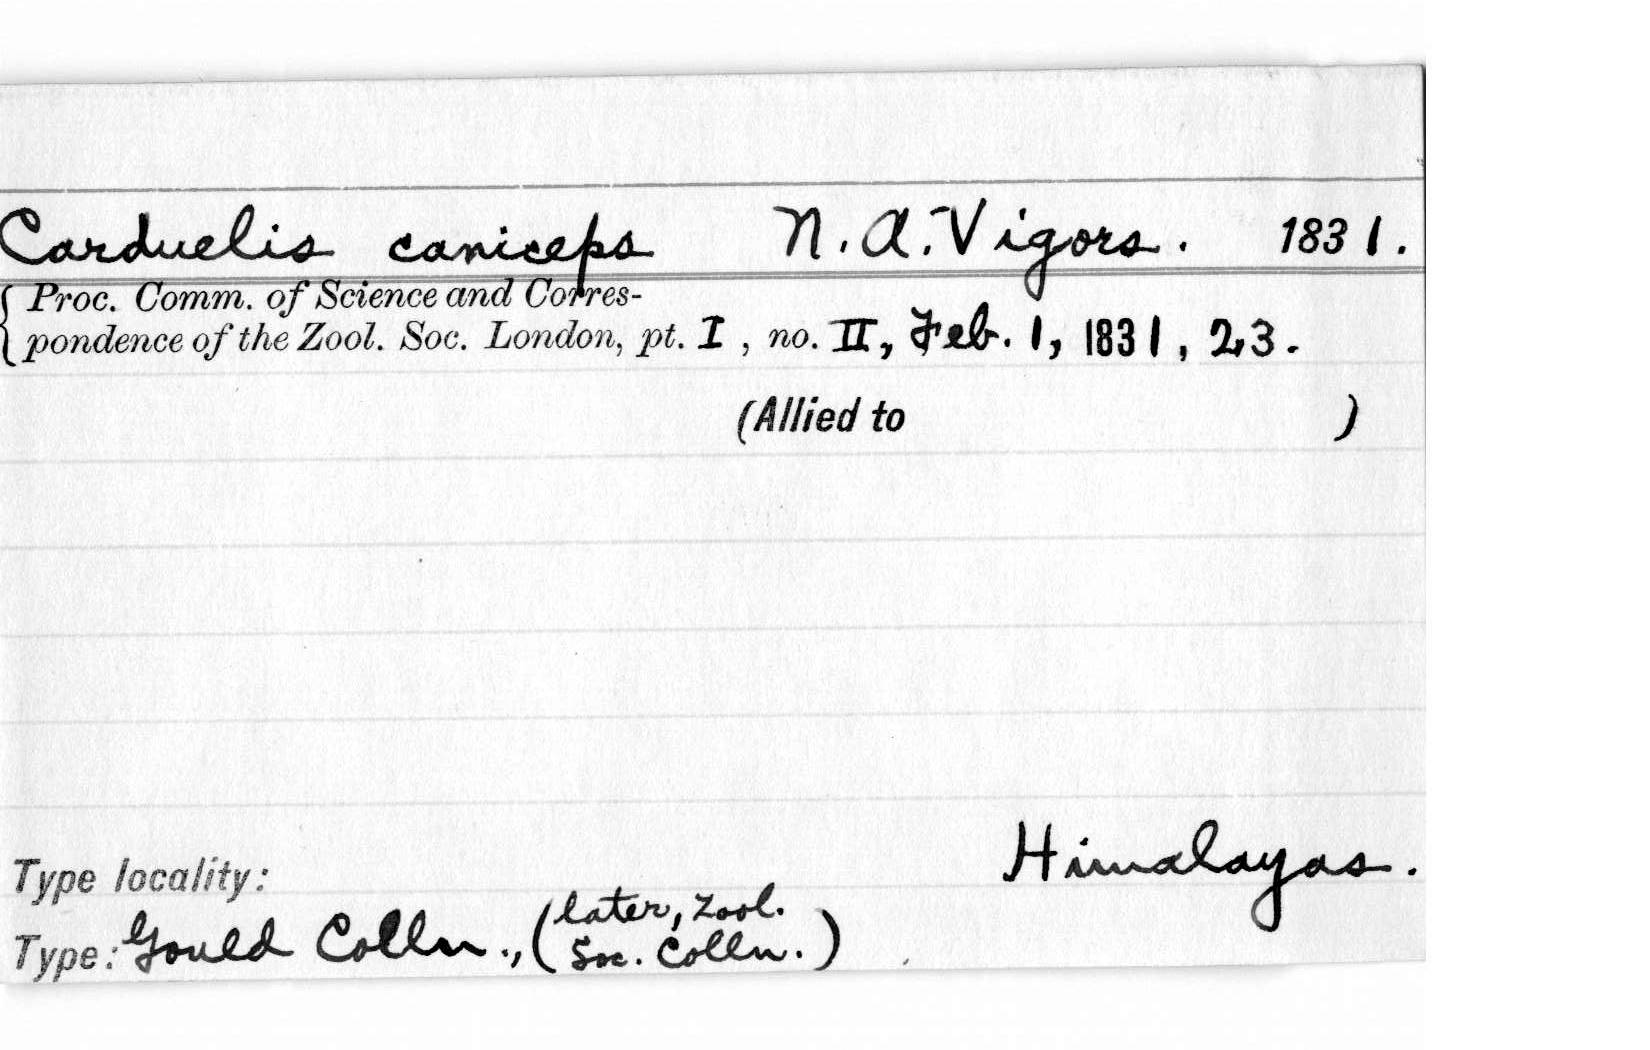 Carduelis caniceps N. A. Vigors. 1831.
{ Proc. Comm. of Science and Corres-
pondence of the Zool. Soc. London, pt. I, no. II, Feb. 1, 1831, 23.
(Allied to )
Himalayas.
Type locality:
Type: Gould Colln., (later, Zool. Soc. Colln.)